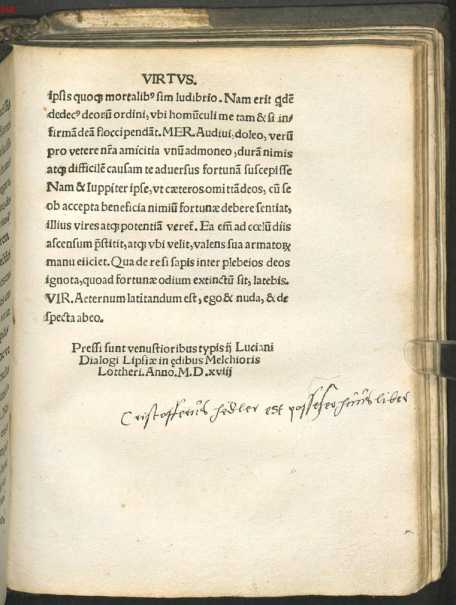 VIRTVS.
ipsis quoqꝫ mortalibꝰ sim ludibrio. Nam erit q̃dẽ
dedecꝰ deorũ ordini, vbi homũculi me tam & si in/
firmã deã floccipendãt. MER. Audiui, doleo, verũ
pro vetere nr̃a amicitia vnũ admoneo, durã nimis
atqꝫ difficilẽ causam te aduersus fortunã suscepisse
Nam & Iuppiter ipse, vt cæteros omittã deos, cũ se
ob accepta beneficia nimiũ fortunæ debere sentiat,
illius vires atqꝫ potentiã veret̃. Ea em̃ ad cœlũ diis
ascensum p̃stitit, atqꝫ vbi velit, valens sua armatoꝝ
manu eiiciet. Qua de re si sapis inter plebeios deos
ignota, quoad fortunæ odium extinctũ sit, latebis.
VIR. Aeternum latitandum est, ego & nuda, & de
specta abeo.
Pressi sunt venustioribus typis ij Luciani
Dialogi Lipsiæ in ędibus Melchioris
Lottheri. Anno. M.D.xviij
Cristofferus hedler est possessor huius liber